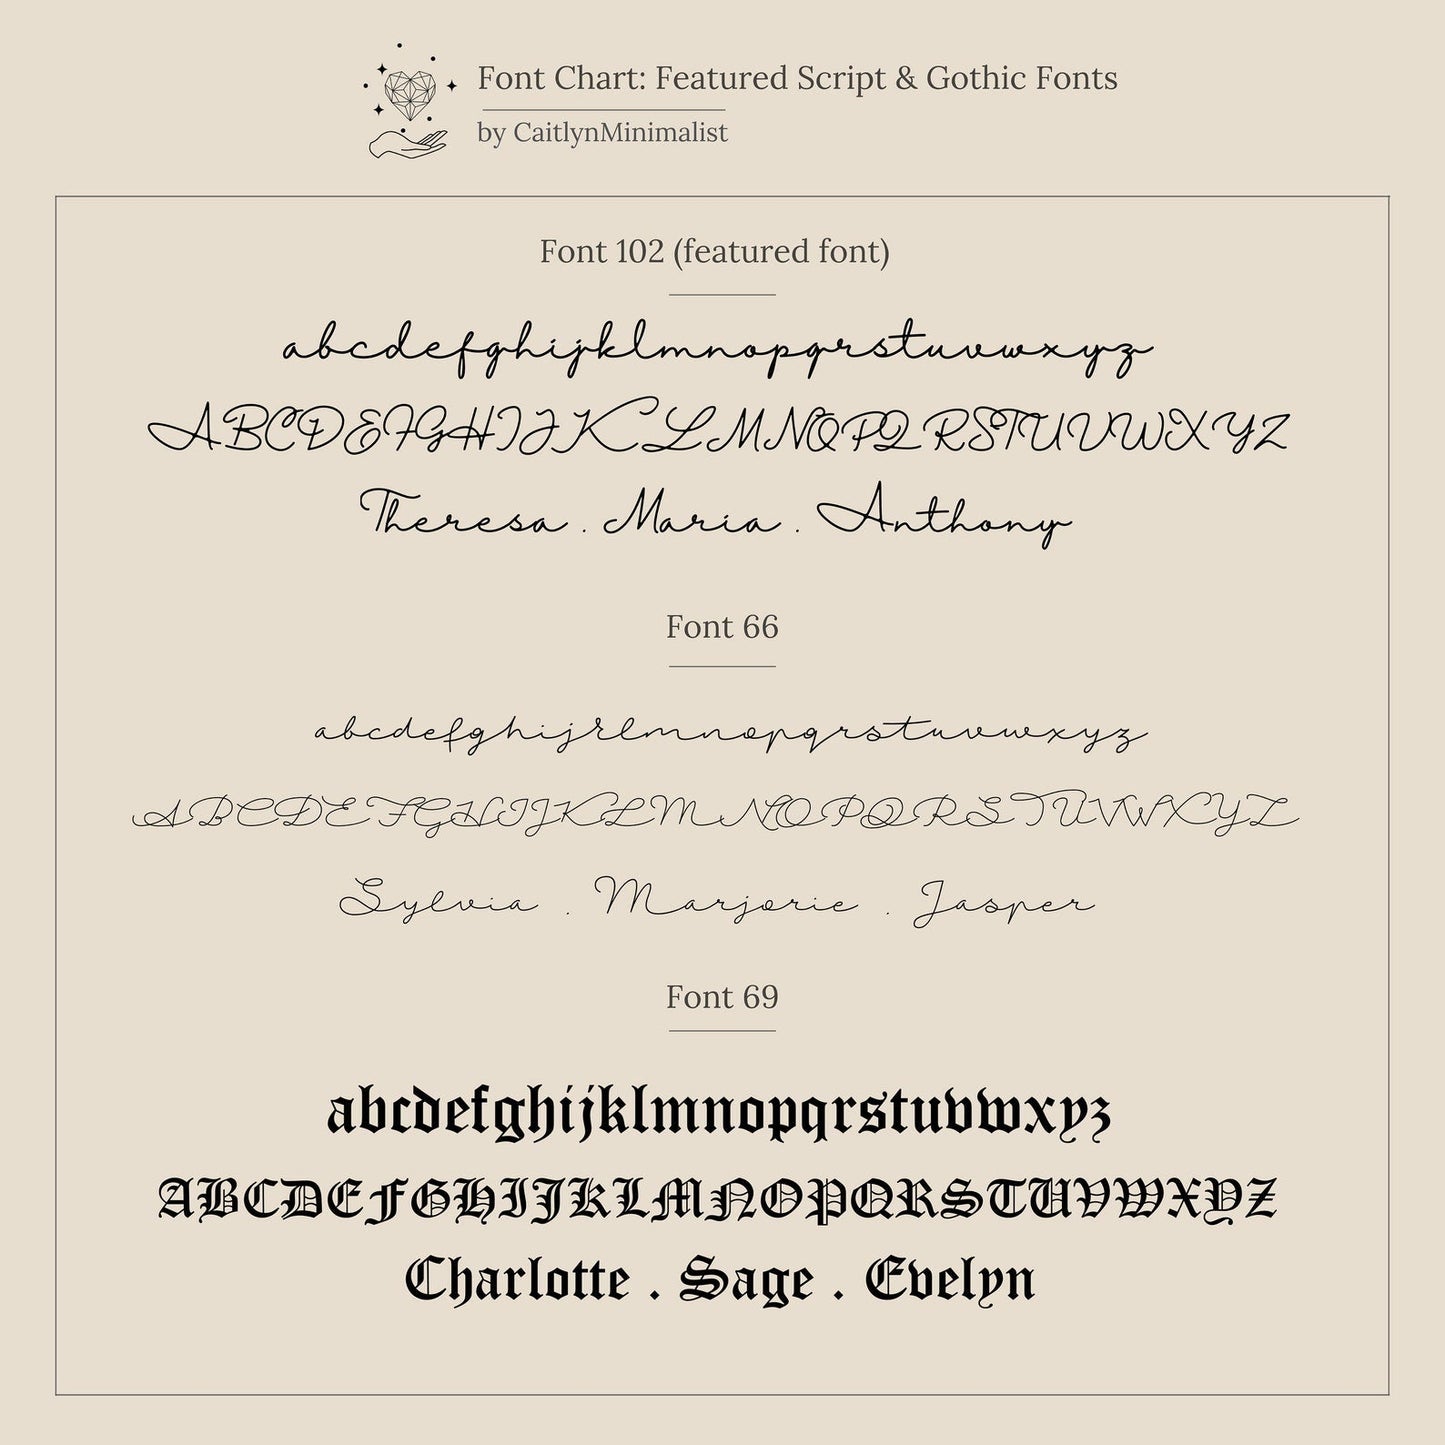 Font Chart: Featured Script & Gothic Fonts
by CaitlynMinimalist
Font 102 (featured font)
abcdefghijklmnopqrstuvwxyz
ABCDEFGHIJKLMNOPQRSTUVWXYZ
Theresa . Maria . Anthony
Font 66
abcdefghijklmnopqrstuvwxyz
ABCDEFGHIJKLMNOPQRSTUVWXYZ
Sylvia . Marjorie . Jasper
Font 69
abcdefghijklmnopqrstuvwxyz
ABCDEFGHIJKLMNOPQRSTUVWXYZ
Charlotte . Sage . Evelyn